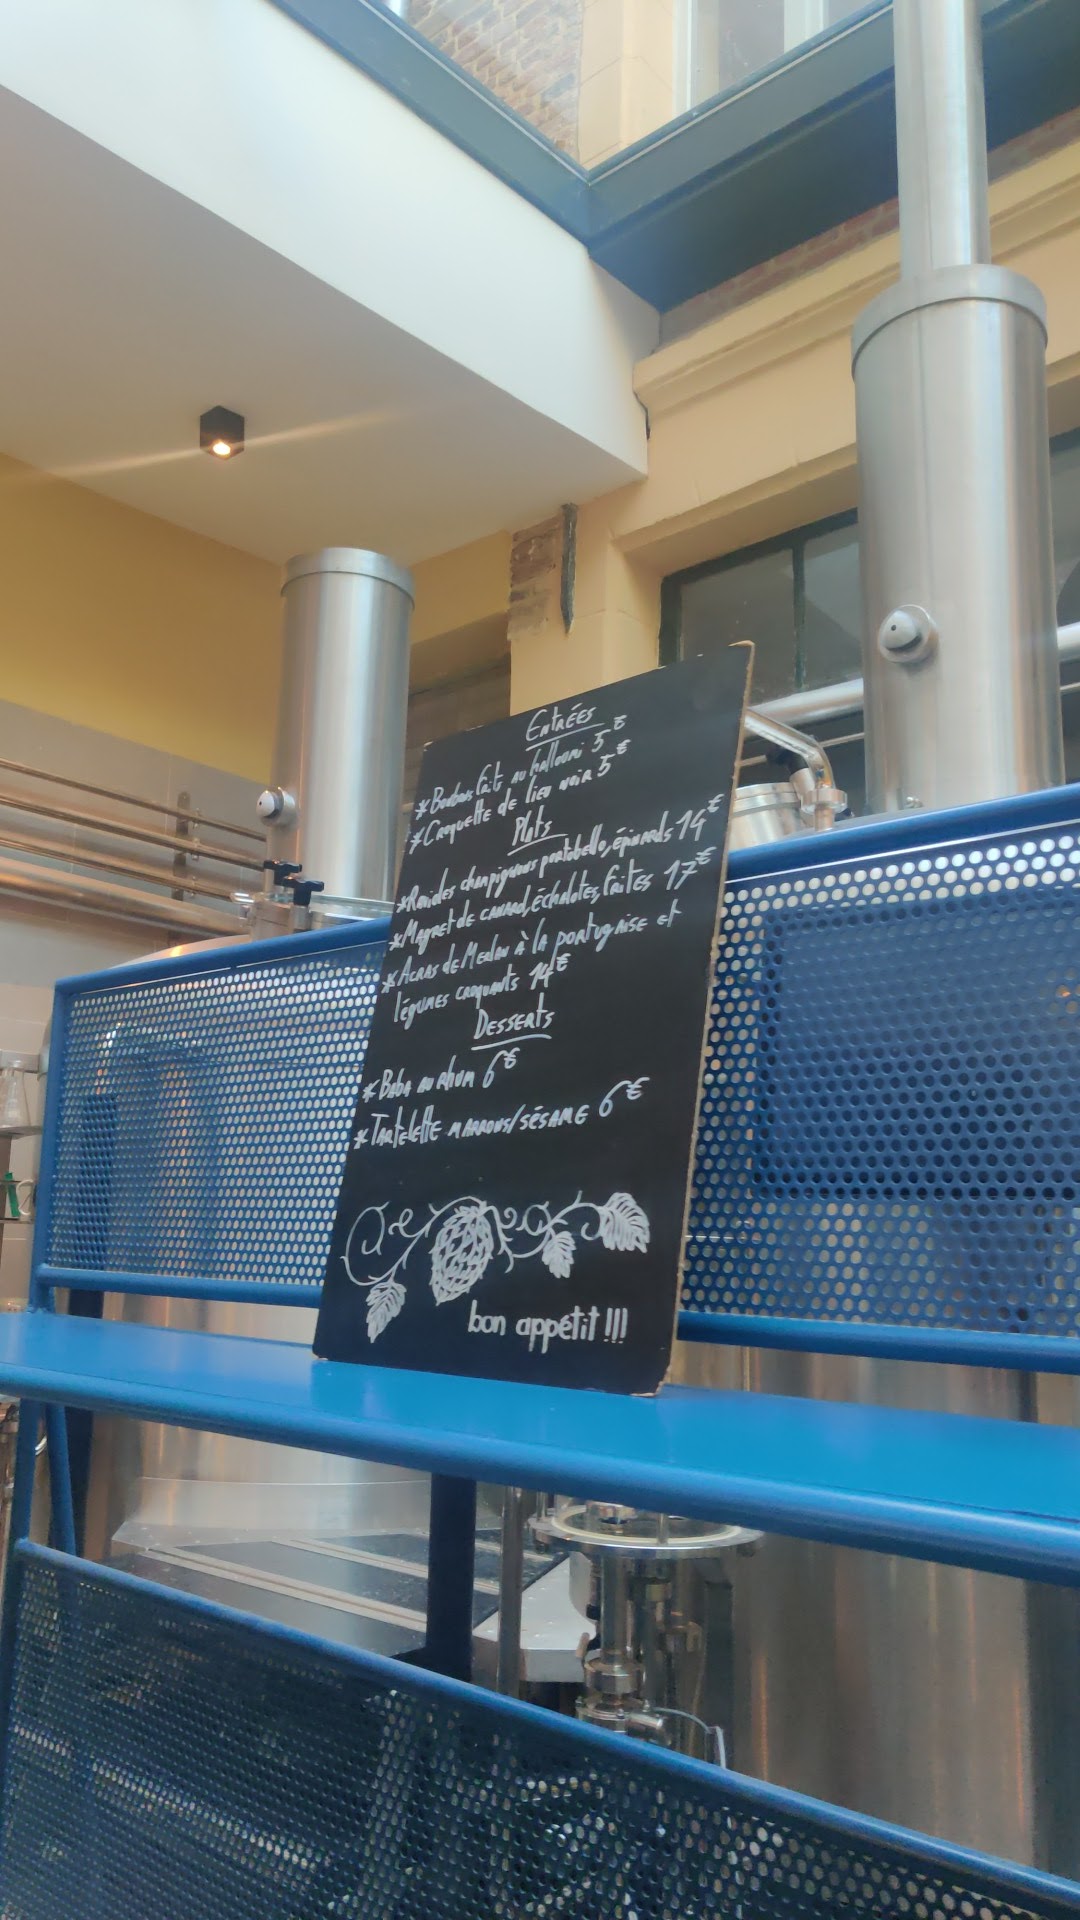 Entrées
* Bonbons fait au halloumi 5€
* Croquette de lieu noir 5€
Plats
* Ravioles champignons portobello, épinards 14€
* Magret de canard, échalotes, frites 17€
* Acras de Merlan à la portugaise et
légumes croquants 14€
Desserts
* Baba au rhum 6€
* Tartelette marrons/sésame 6€
bon appétit !!!